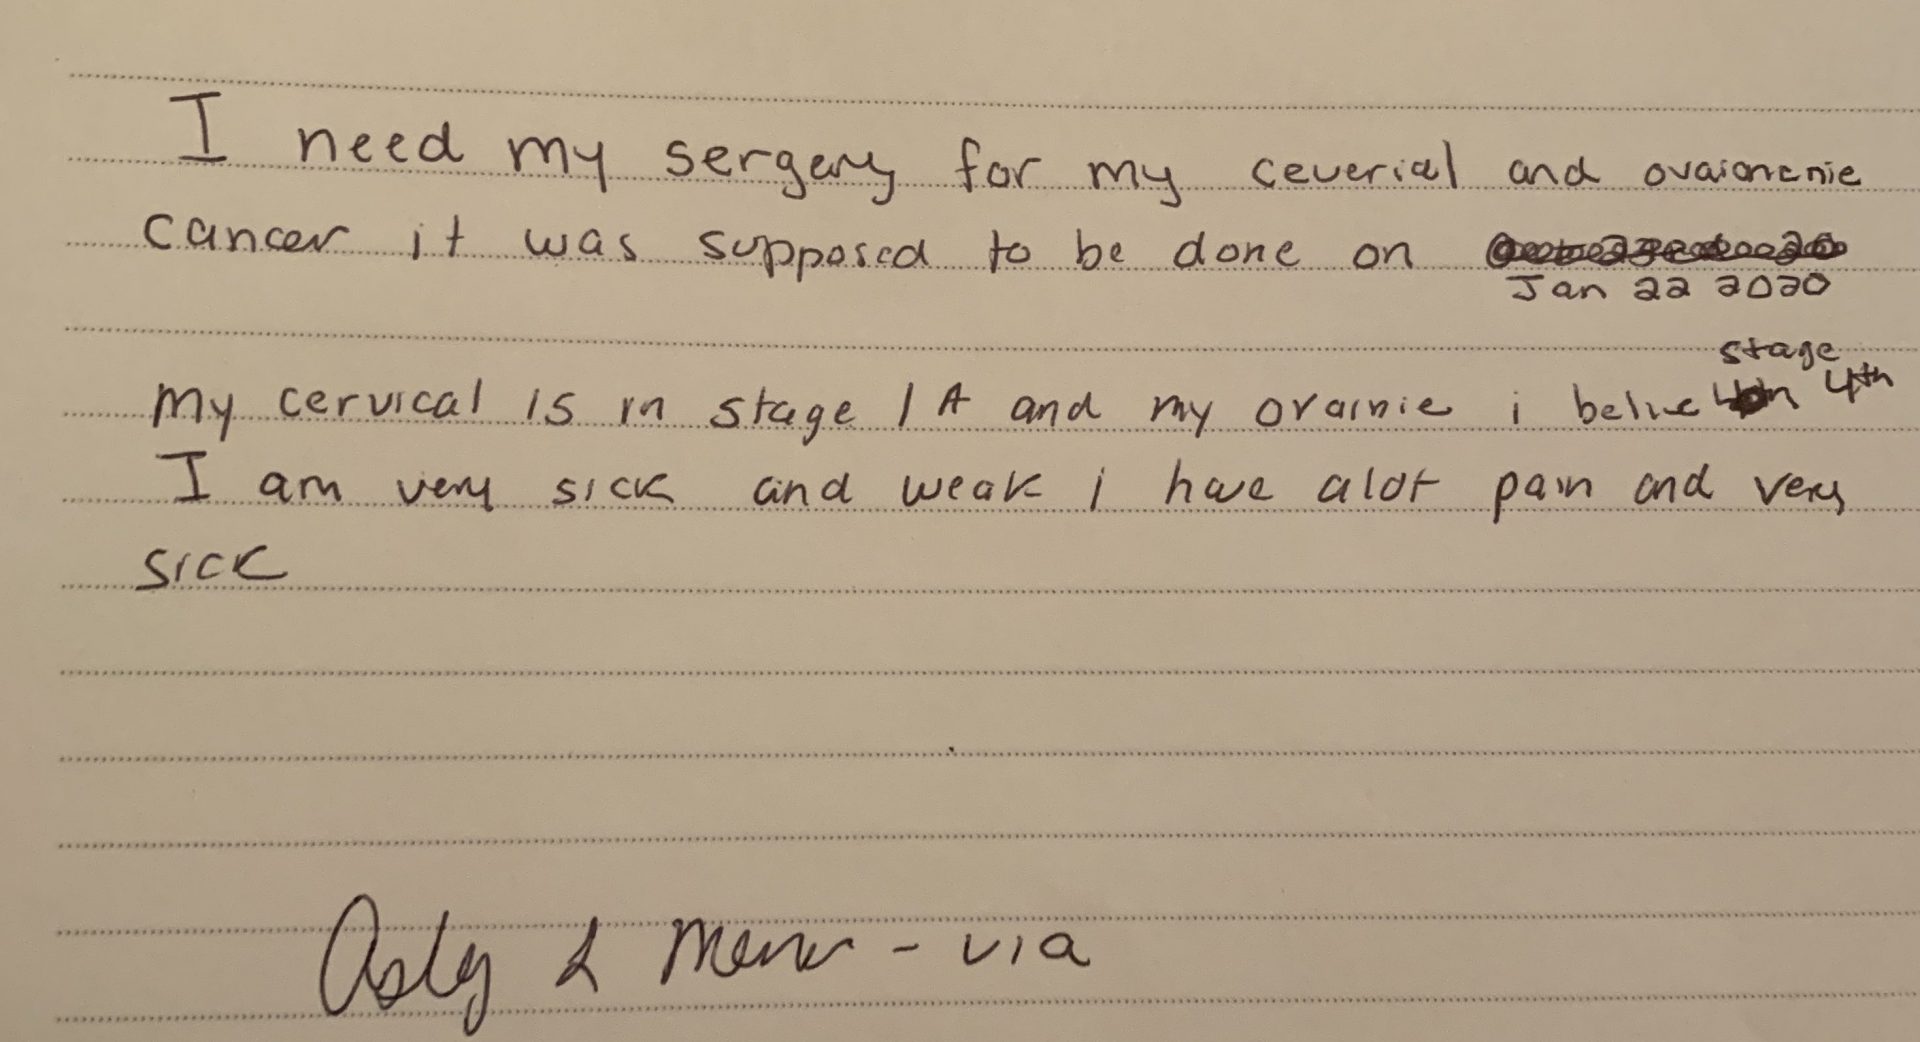 I need my sergery for my ceverial and ovaiancnie
cancer it was supposed to be done on
Jan 22 2020
stage
my cervical is in stage 1A and my ovainie i belive 4th
I am very sick and weak i have alot pain and very
sick
L - via